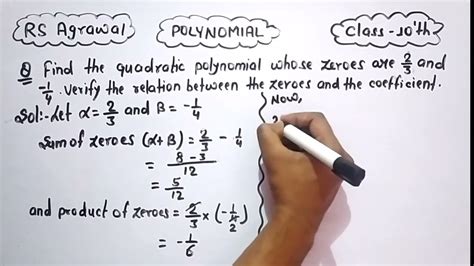 RS Agrawal
POLYNOMIAL
Class-10'th
Q Find the quadratic polynomial whose zeroes are 2/3 and
-1/4. Verify the relation between the zeroes and the coefficient.
Sol:- Let α = 2/3 and β = -1/4
Sum of zeroes (α+β) = 2/3 - 1/4
= 8-3/12
= 5/12
and product of zeroes = 2/3 × (-1/4 2)
= -1/6
Now,